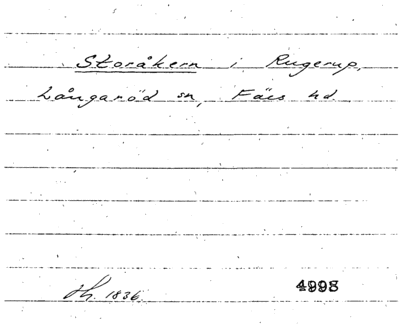 Storåkern i Rugerup,
Långaröd sn, Färs hd
1836 4998